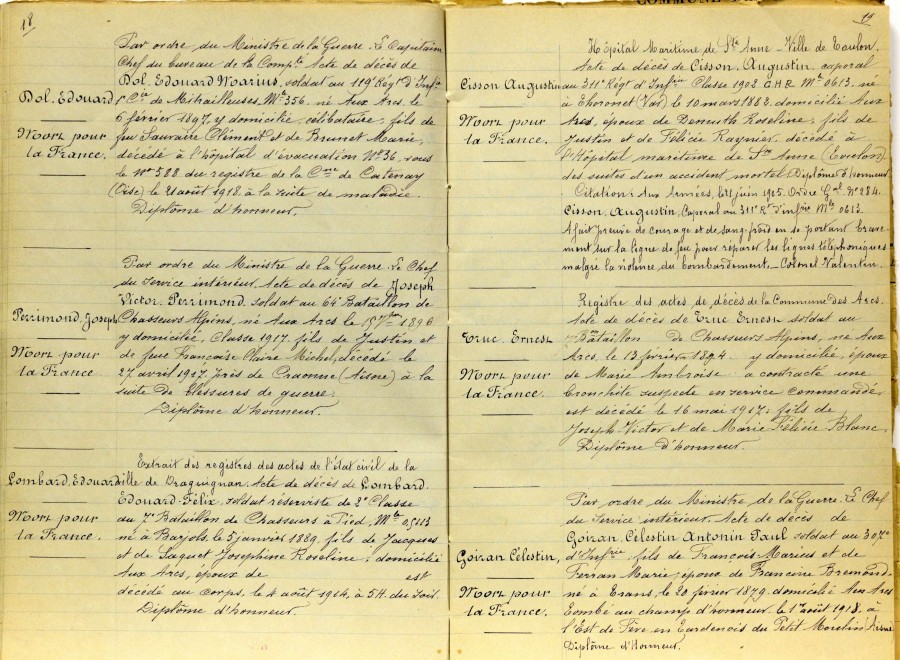 18
Par ordre du Ministre de la Guerre. Le Capitaine
Chef du bureau de la Comp<sup>te</sup> Acte de décès de
Dol, Edouard Marius, soldat au 119<sup>e</sup> Rég<sup>t</sup> d'Inf<sup>ie</sup>
Dol, Edouard
1<sup>e</sup> C<sup>ie</sup> de Mitrailleuses, M<sup>le</sup> 356, né Aux Arcs, le
6 février 1897, y domicilié, célibataire, fils de
Mort pour
la France.
feu Sauvaire Clément et de Brunet Marie,
décédé à l'hôpital d'évacuation N° 36, sous
le n° 588 du registre de la C<sup>ne</sup> de Catenoy
(Oise) le 21 août 1918, à la suite de maladie
Diplôme d'honneur.
Par ordre du Ministre de la Guerre. Le Chef
du service intérieur. Acte de décès de Joseph
Victor Perrimond, soldat au 64<sup>e</sup> Bataillon de
Perrimond, Joseph
Chasseurs Alpins, né Aux Arcs le 1896
y domicilié, Classe 1917, fils de Justin et
Mort pour
la France
de feue Françoise Claire Michel, décédé le
27 avril 1917, près de Craonne (Aisne) à la
suite de blessures de guerre.
Diplôme d'honneur.
Extrait des registres des actes de l'état civil de la
Lombard, Edouard
ville de Draguignan. Acte de décès de Lombard
Edouard-Félix, soldat réserviste de 2<sup>e</sup> Classe
Mort pour
la France.
au 7<sup>e</sup> Bataillon de Chasseurs à Pied, M<sup>le</sup> 05113
né à Barjols, le 5 janvier 1889, fils de Jacques
et de Laguet Joséphine Roseline, domicilié
Aux Arcs, époux de est
décédé au corps, le 4 août 1914, à 5H. du soir.
Diplôme d'honneur
19
Hôpital Maritime de S<sup>te</sup> Anne - Ville de Toulon.
Acte de décès de Cisson, Augustin, caporal
Cisson Augustin
au 311<sup>e</sup> Rég<sup>t</sup> d'Inf<sup>rie</sup> Classe 1902 C.H.R. M<sup>le</sup> 0613. né
à Thoronet (Var) le 10 mars 1882, domicilié Aux
Mort pour
la France.
Arcs, époux de Demuth Roseline; fils de
Justin et de Félicie Raynier, décédé à
l'Hôpital maritime de S<sup>te</sup> Anne (Toulon)
des suites d'un accident mortel. Diplôme d'honneur
Citation: Aux Armées, le juin Ordre G<sup>al</sup> N° 284.
Cisson, Augustin, Caporal au 311<sup>e</sup> R<sup>t</sup> d'inf<sup>rie</sup> M<sup>le</sup> 0613.
A fait preuve de courage et de sang-froid en se portant brave-
ment sur la ligne de feu pour réparer les lignes téléphoniques
malgré la violence du bombardement. - Colonel Valentin.
Registre des actes de décès de la Commune des Arcs.
Acte de décès de Truc Ernest soldat au
Truc, Ernest
Bataillon de Chasseurs Alpins, né Aux
Arcs, le 13 février 1894, y domicilié, époux
Mort pour
la France.
de Marie Ambroise a contracté une
bronchite suspecte en service commandé,
est décédé le 16 mai 1917; fils de
Joseph Victor et de Marie Félicie Blanc.
Diplôme d'honneur
Par ordre du Ministre de la Guerre. Le Chef
du service intérieur. Acte de décès de
Goiran, Célestin Antonin Paul soldat au 307<sup>e</sup>
Goiran Célestin,
d'Inf<sup>rie</sup>, fils de François-Marius et de
Ferran Marie, époux de Francine Bremond
Mort pour
la France.
né à Trans, le 20 février 1879, domicilié Aux Arcs
Tombé au champ d'honneur le 1<sup>er</sup> août 1918, à
l'Est de Fère en Tardenois du Petit Moulin (Aisne
Diplôme d'Honneur.